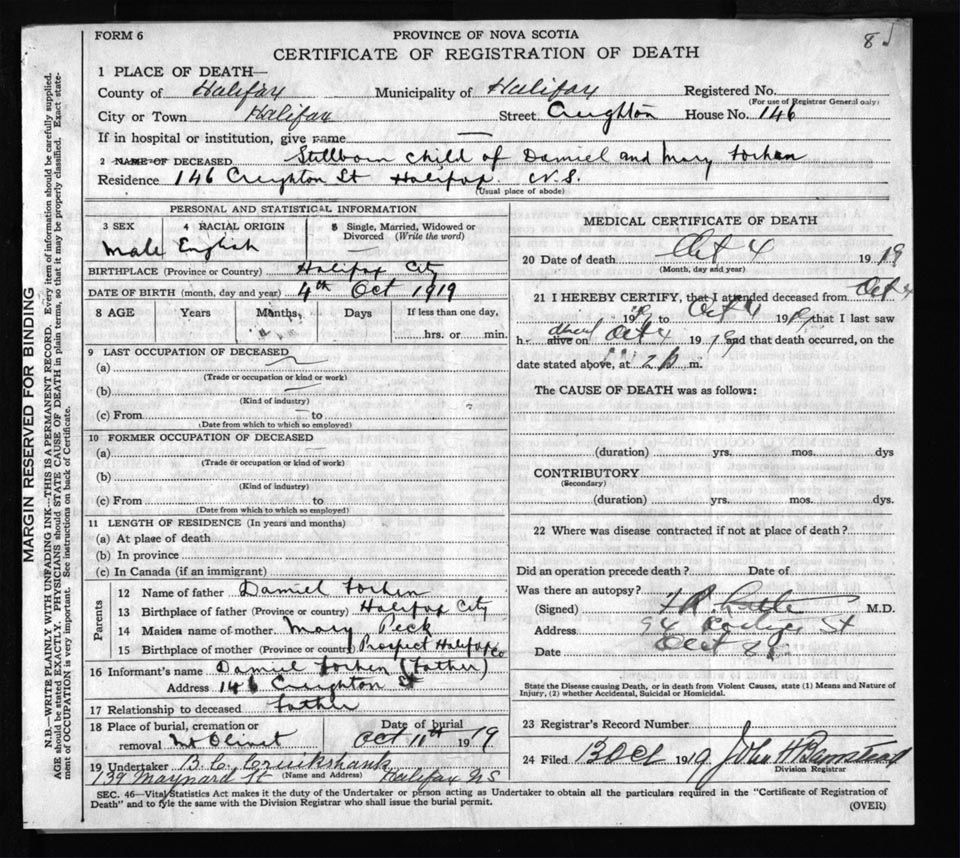 FORM 6
PROVINCE OF NOVA SCOTIA
8
CERTIFICATE OF REGISTRATION OF DEATH
1 PLACE OF DEATH—
County of Halifax Municipality of Halifax Registered No.
(For use of Registrar General only)
City or Town Halifax Street Creighton House No. 146
If in hospital or institution, give name —
2 NAME OF DECEASED Stillborn child of Daniel and Mary
Residence 146 Creighton St Halifax N.S.
(Usual place of abode)
PERSONAL AND STATISTICAL INFORMATION
3 SEX 4 RACIAL ORIGIN 5 Single, Married, Widowed or
Divorced (Write the word)
Male English —
BIRTHPLACE (Province or Country) Halifax City
DATE OF BIRTH (month, day and year) 4th Oct 1919
8 AGE Years Months Days If less than one day,
hrs. or min.
9 LAST OCCUPATION OF DECEASED
(a)
(Trade or occupation or kind or work)
(b)
(Kind of industry)
(c) From to
(Date from which to which so employed)
10 FORMER OCCUPATION OF DECEASED
(a)
(Trade or occupation or kind of work)
(b)
(Kind of industry)
(c) From to
(Date from which to which so employed)
11 LENGTH OF RESIDENCE (In years and months)
(a) At place of death
(b) In province
(c) In Canada (if an immigrant)
Parents
12 Name of father Daniel
13 Birthplace of father (Province or country) Halifax City
14 Maiden name of mother Mary Peck
15 Birthplace of mother (Province or country) Prospect Halifax Co
16 Informant's name Daniel (Father)
Address 146 Creighton St
17 Relationship to deceased Father
18 Place of burial, cremation or Date of burial
removal Mt Olivet Oct 11th 1919
19 Undertaker B. C. Cruikshank
139 Maynard St (Name and Address) Halifax NS
MEDICAL CERTIFICATE OF DEATH
20 Date of death Oct 4 1919
(Month, day and year)
21 I HEREBY CERTIFY, that I attended deceased from Oct 4
1919 to Oct 4 1919 that I last saw
h alive on dead Oct 4 1919 and that death occurred, on the
date stated above, at m.
The CAUSE OF DEATH was as follows:
(duration) yrs. mos. dys
CONTRIBUTORY
(Secondary)
(duration) yrs. mos. dys.
22 Where was disease contracted if not at place of death?
Did an operation precede death? Date of
Was there an autopsy?
(Signed) M.D.
Address St
Date Oct 8
State the Disease causing Death, or in death from Violent Causes, state (1) Means and Nature of
Injury, (2) whether Accidental, Suicidal or Homicidal.
23 Registrar's Record Number
24 Filed 13 Oct 1919 John H
Division Registrar
SEC. 46—Vital Statistics Act makes it the duty of the Undertaker or person acting as Undertaker to obtain all the particulars required in the "Certificate of Registration of
Death" and to file the same with the Division Registrar who shall issue the burial permit.
(OVER)
MARGIN RESERVED FOR BINDING
N.B.—WRITE PLAINLY WITH UNFADING INK—THIS IS A PERMANENT RECORD. Every item of information should be carefully supplied.
AGE should be stated EXACTLY. PHYSICIANS should STATE CAUSE OF DEATH in plain terms, so that it may be properly classified. Exact state-
ment of OCCUPATION is very important. See instructions on back of Certificate.